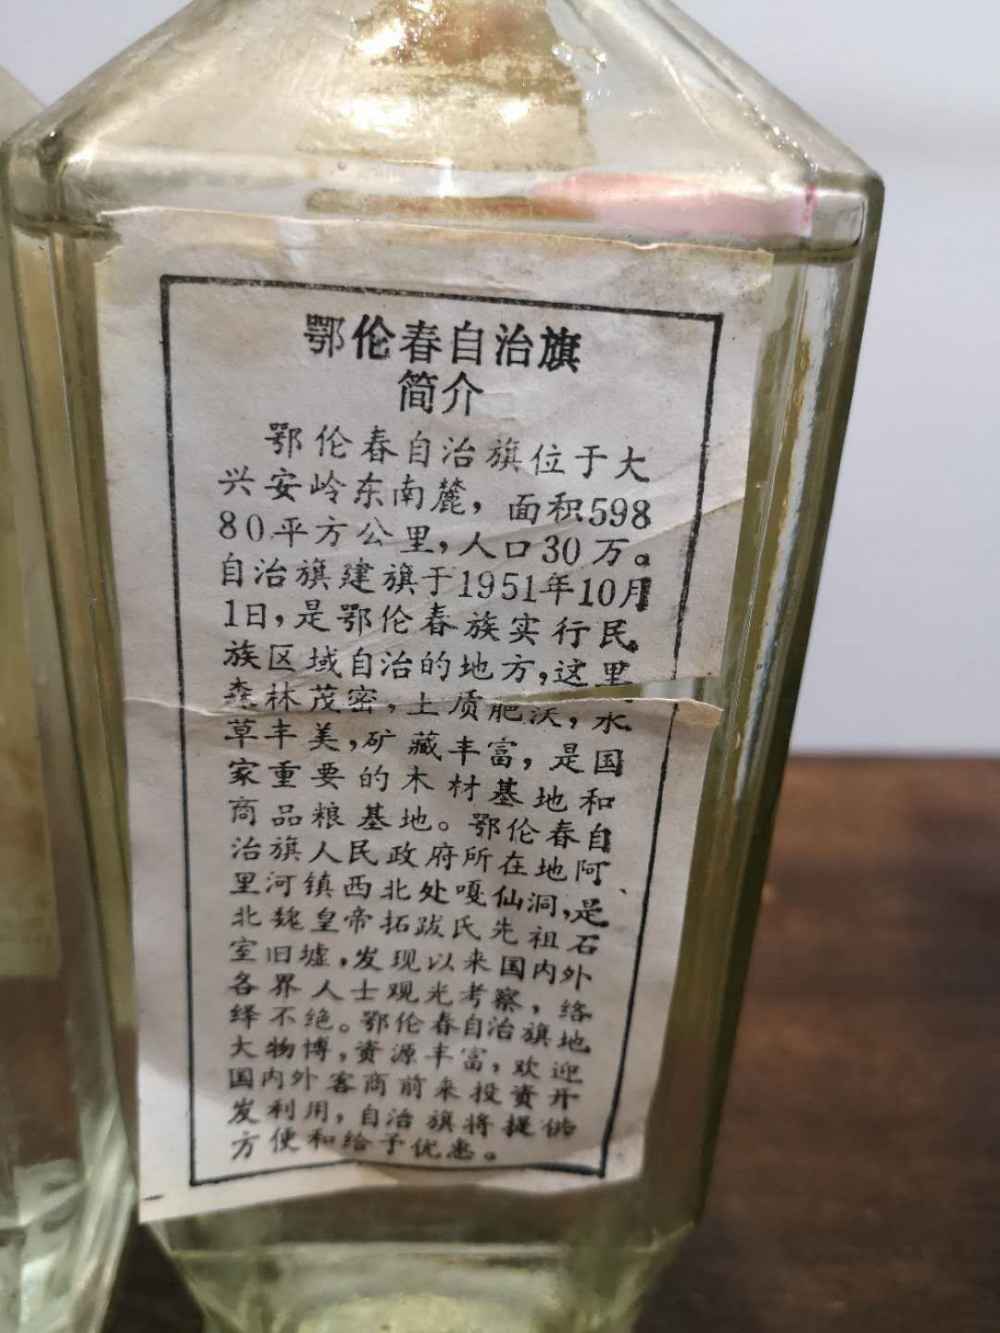 鄂伦春自治旗
简介
鄂伦春自治旗位于大
兴安岭东南麓，面积598
80平方公里，人口30万。
自治旗建旗于1951年10月
1日，是鄂伦春族实行民
族区域自治的地方，这里
森林茂密，土质肥沃，水
草丰美，矿藏丰富，是国
家重要的木材基地和
商品粮基地。鄂伦春自
治旗人民政府所在地阿
里河镇西北处嘎仙洞，是
北魏皇帝拓跋氏先祖石
室旧墟，发现以来国内外
各界人士观光考察，络
绎不绝。鄂伦春自治旗地
大物博，资源丰富，欢迎
国内外客商前来投资开
发利用，自治旗将提供
方便和给予优惠。